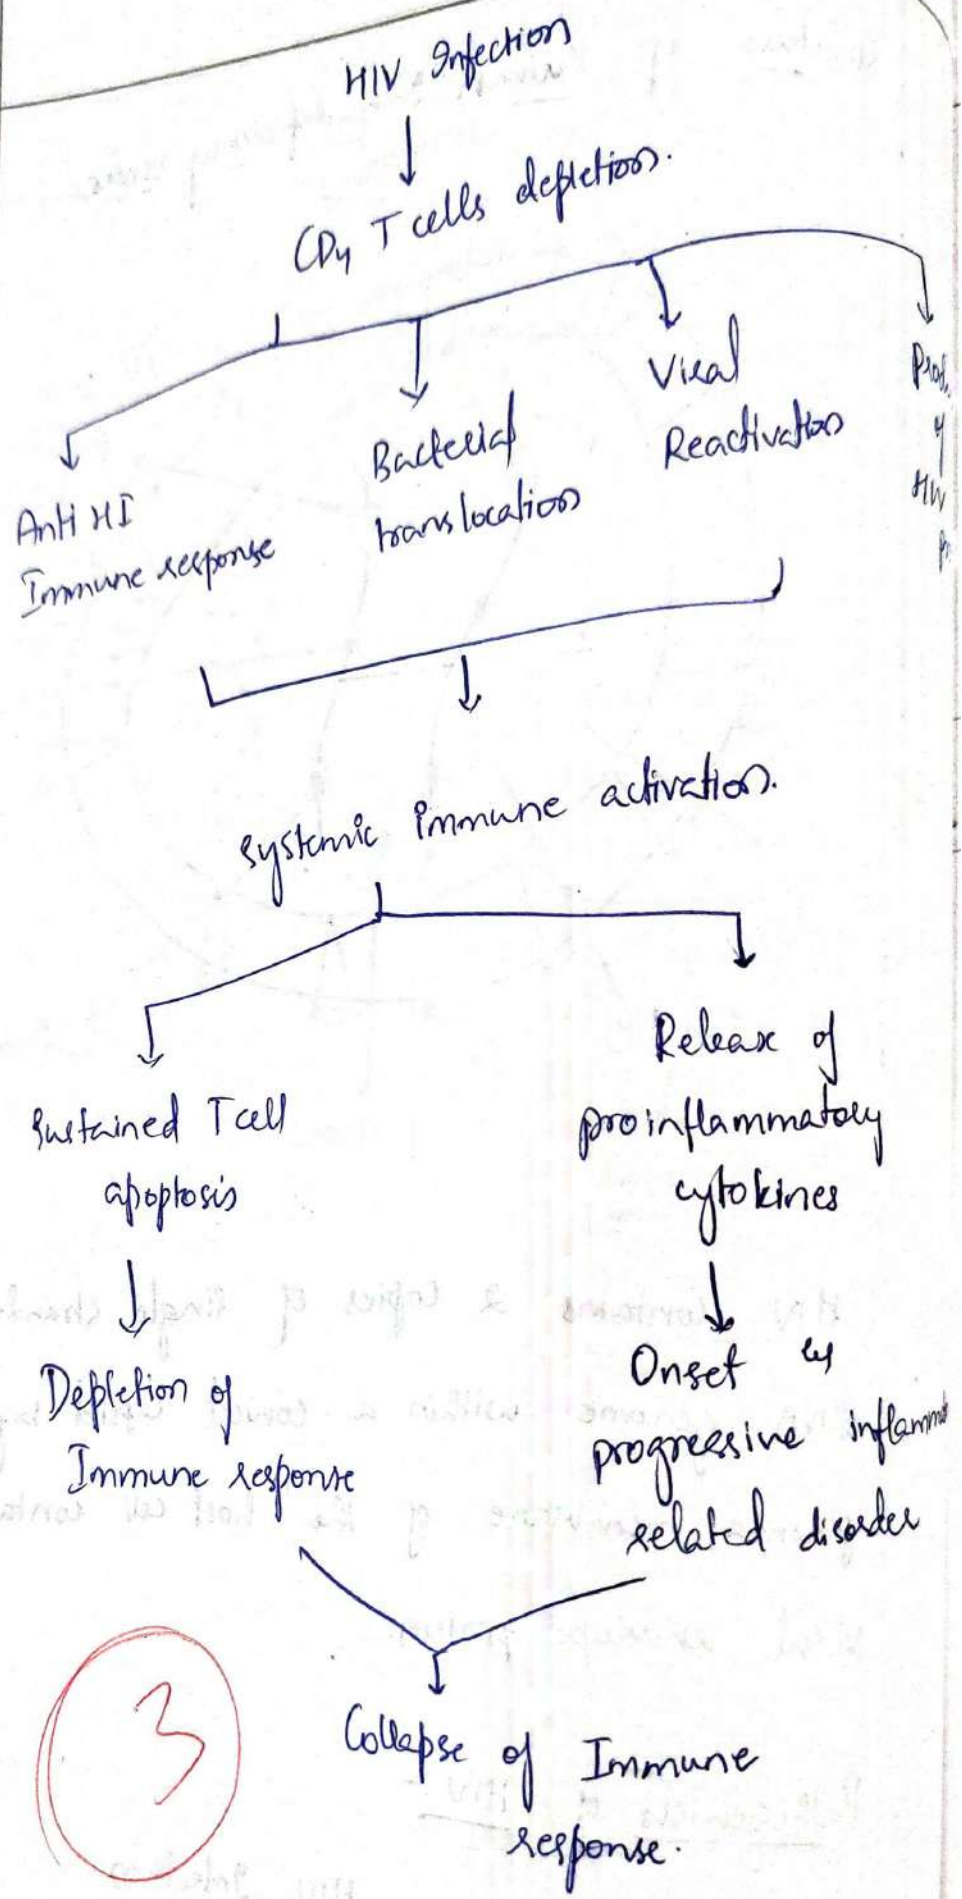 HIV Infection
CD4 T cells depletion.
Anti HI
Immune response
Bacterial
translocation
Viral
Reactivation
Prod.
of
HIV
systemic immune activation.
Sustained T cell
apoptosis
Release of
proinflammatory
cytokines
Depletion of
Immune response
Onset of
progressive inflamm
related disorder
Collapse of Immune
response.
3